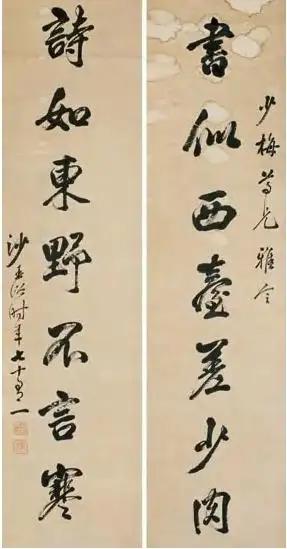 少梅尊兄雅令
書似西臺差少肉
詩如東野不言寒
時年七十有一